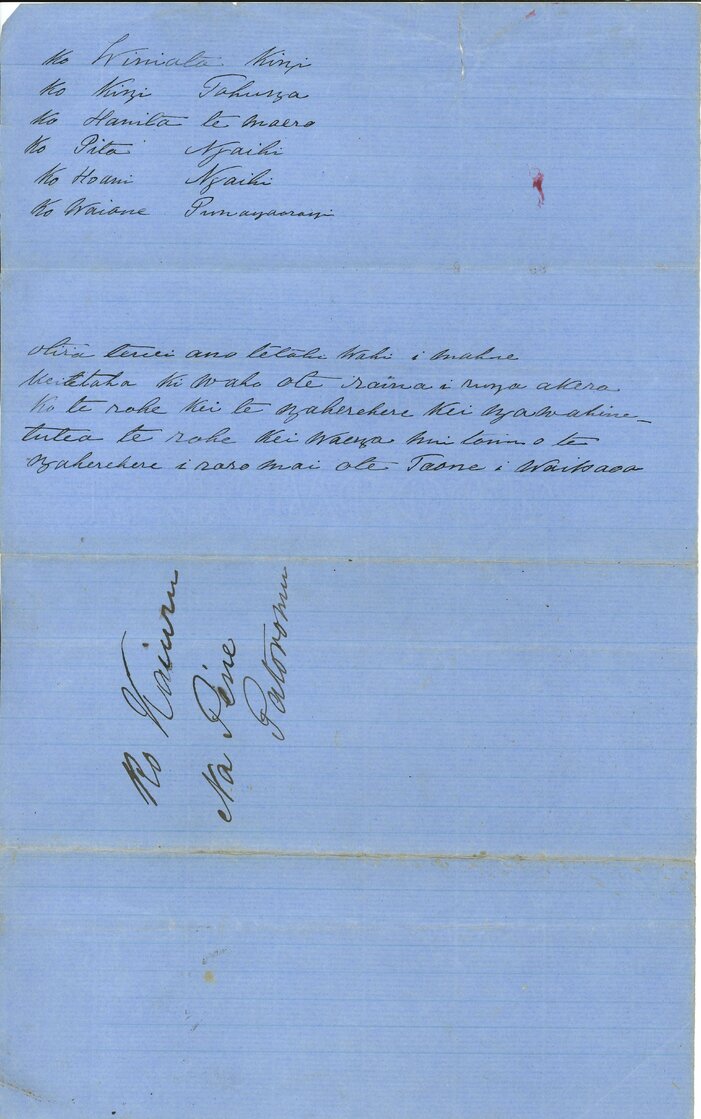 Ko Winiata Kingi
Ko Kingi Tahunga
Ko Hanita te maero
Ko Pita Ngaihi
Ko Hoani Ngaihi
Ko Waione
otira tenei ano tetahi wahi i mahue
Kei tetaha ki waho o te raina i runga akera
Ko te rohe kei te ngaherehere kei ngawahine_
tutea te rohe kei waenga nui tonu o te
ngaherehere i raro mai o te Taone i
Ko
Na Pine
Patoromu